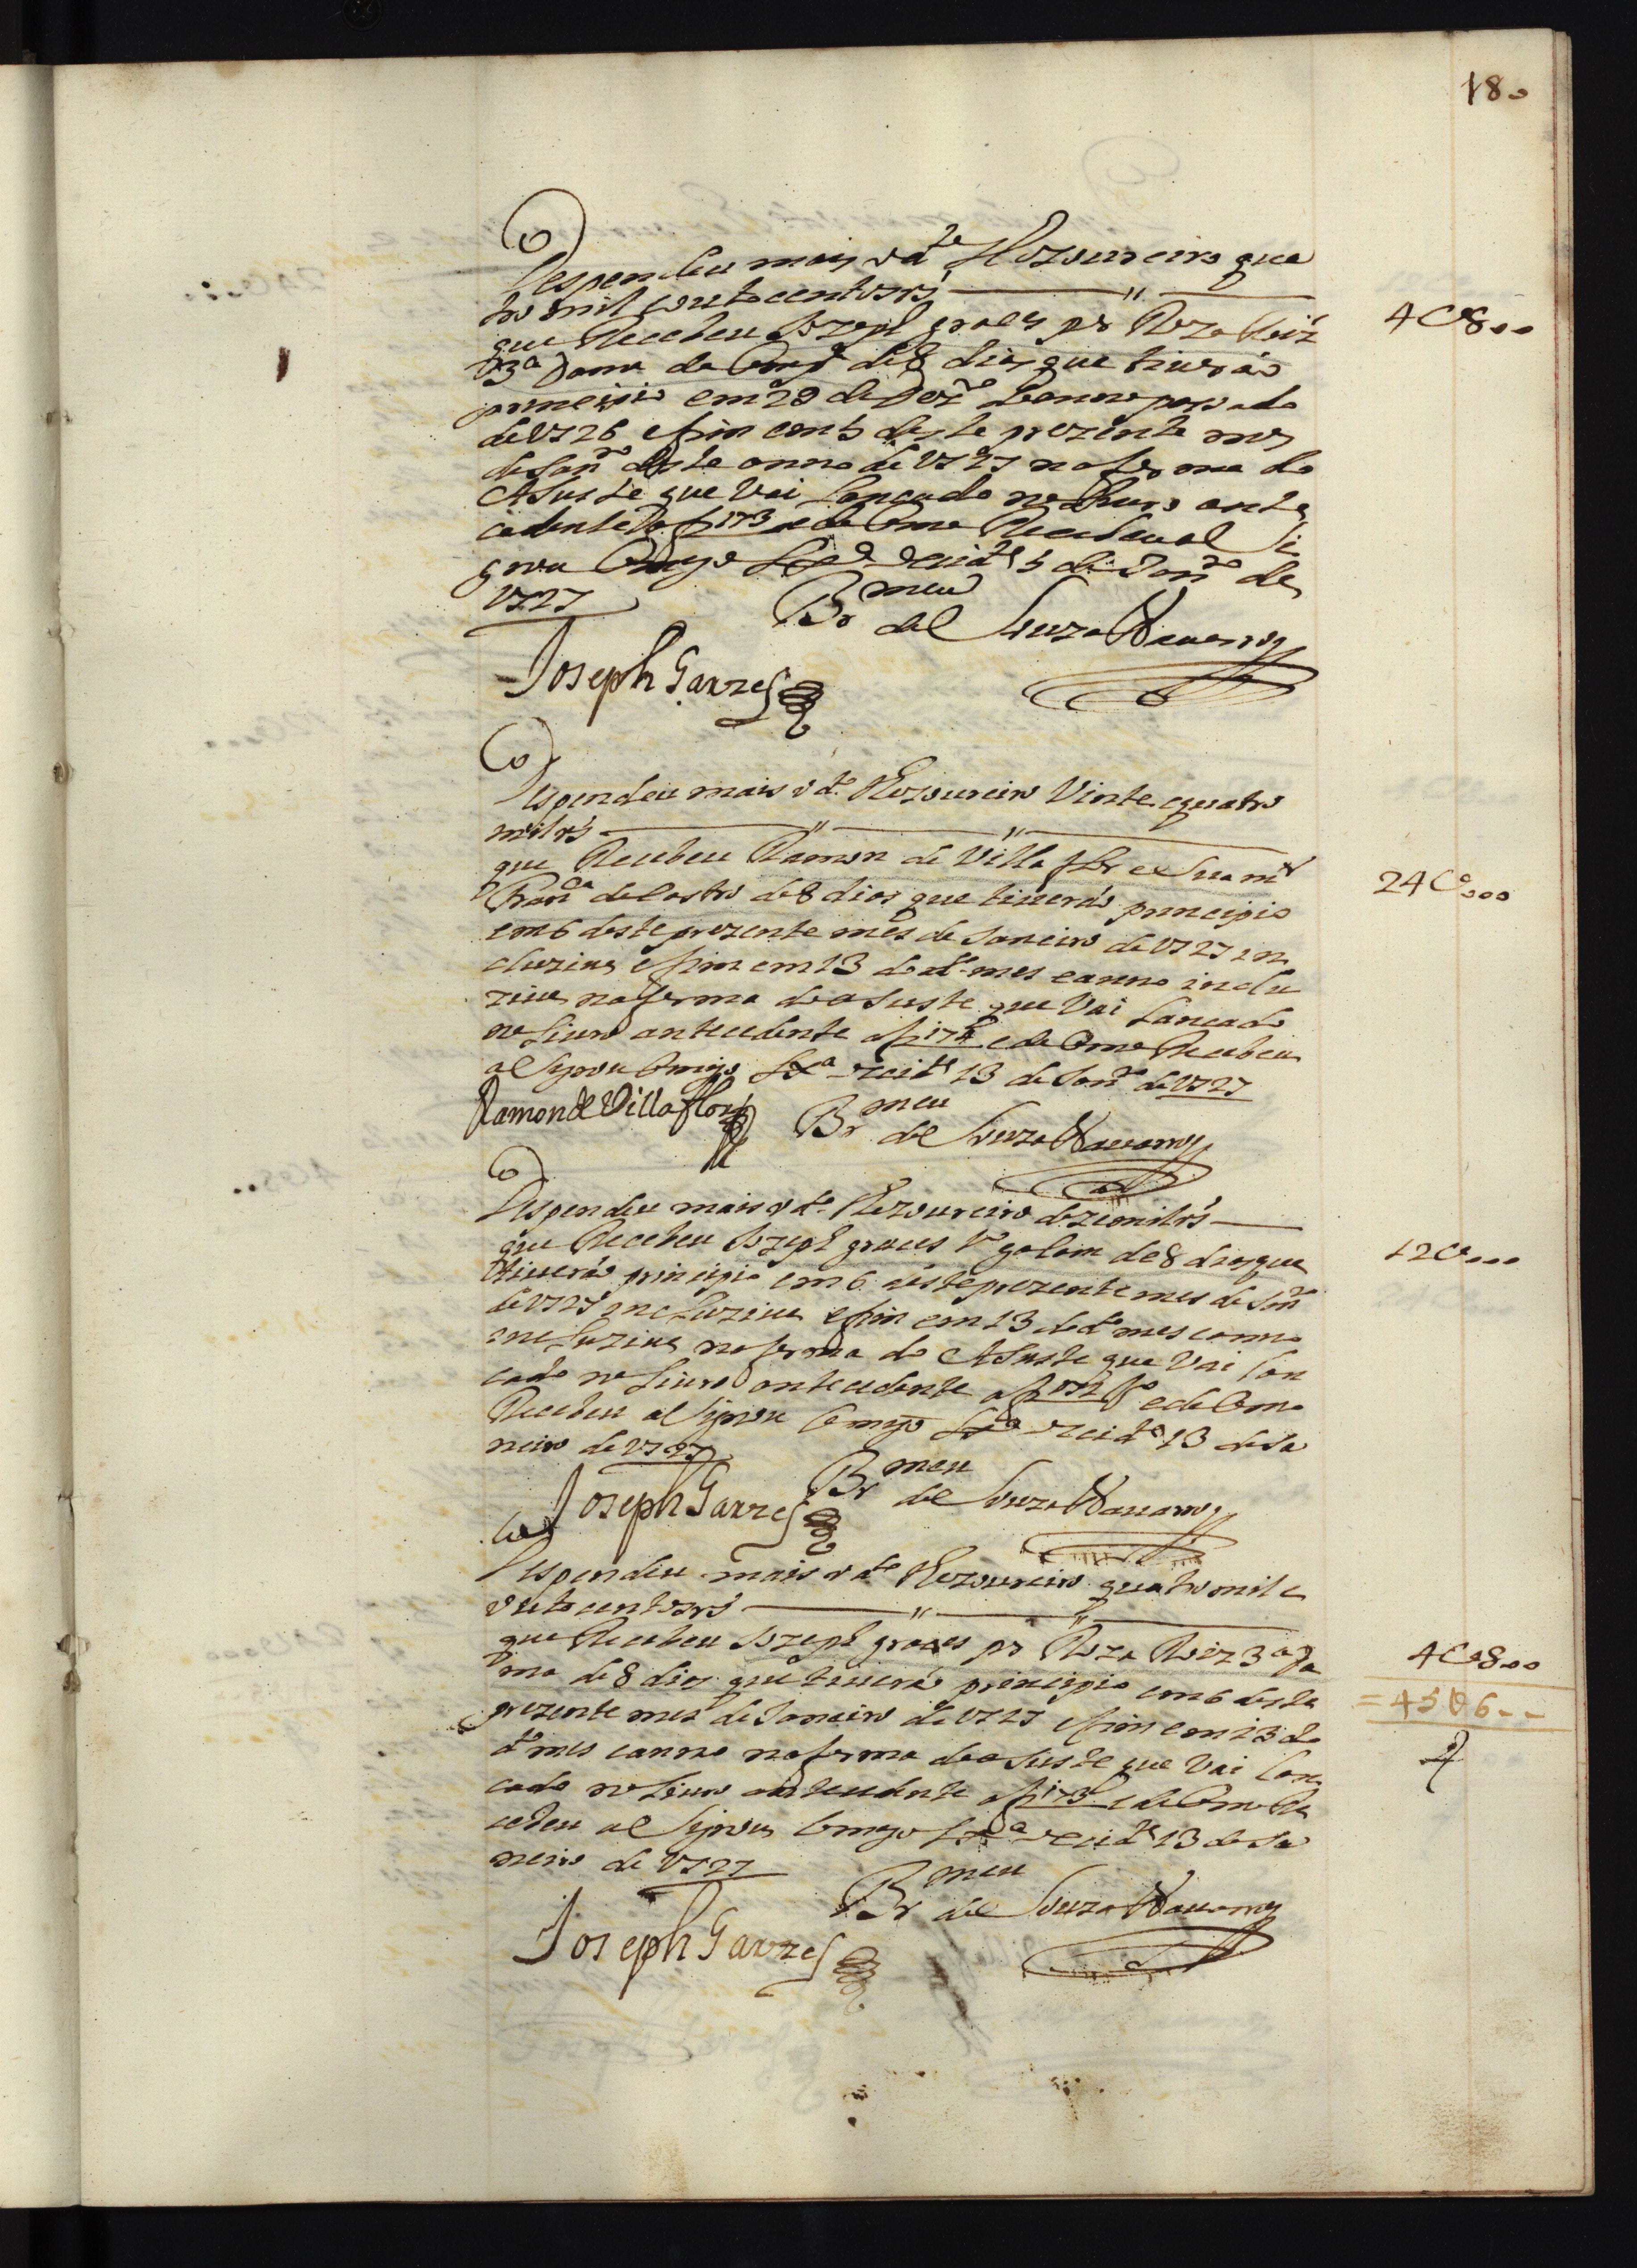 180
Despendeu mais o dte Thezoureiro qua
tro mil e outo centos rs
4U800
que Recebeu Jozeph graces por Roza Roiz
3a Dama da Comp de 8 dias que tiverão
principio em 28 de Dezro do anno passado
de 1726 e fim em 5 deste prezente mes
de Janro deste anno de 1727 na forma do
Ajuste que Vai Lançado no Livro ante
cedente a f 173 e de Como Recebeu al Si
gnou Comigo Lxa occidtal 5 de Janro de
1727
Bmeu
Br de Souza Navarro
Joseph Garzes
Despendeu mais o dto Thezoureiro Vinte e quatro
mil rs
que Recebeu Ramon de Villa flor e Sua mer
24U000
Franca de Castro de 8 dias que tiverão principio
em 6 deste prezente mes de Janeiro de 1727 in
cluzive e fim em 13 do dto mes e anno inclu
zive na forma do aJuste que Vai Lancado
no Livro antecedente a f 174 e de Como Recebeu
al Signou Comigo Lxa occidtal 13 de Janro de 1727
Ramon de Villaflor
Bmeu
Br de Souza Navarro
Despendeu mais o dto Thezoureiro doze mil rs
que Recebeu Jozeph graces po galam de 8 dias que
12U000
tiverão principio em 6 deste prezente mes de Janro
de 1727 incluzive e fim em 13 do dto mes e anno
incluzive na forma do AJuste que Vai Lan
cado no Livro antecedente a f 172 e de Como
Recebeu al Signou Comigo Lxa occidtal 13 de Ja
neiro de 1727
Bmeu
Br de Souza Navarro
Joseph Garzes
Despendeu mais o dto Thezoureiro quatro mil e
outo centos rs
que Recebeu Jozeph graces por Roza Roiz 3a Da
4U800
ma de 8 dias que tiverão principio em 6 deste
=45U6--
prezente mes de Janeiro de 1727 e fim em 13 do
dto mes e anno na forma do aJuste que Vai Lan
cado no Livro antecedente a f 173 e de Como Re
cebeu al Signou Comigo Lxa occidtal 13 de Ja
neiro de 1727
Bmeu
Br de Souza Navarro
Joseph Garzes